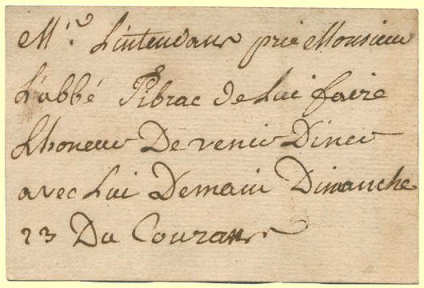 Mr. L'intendant prie Monsieur
L'abbé Pibrac de Lui faire
L'honeur De venir Diner
avec Lui Demain Dimanche
23 Du Courant